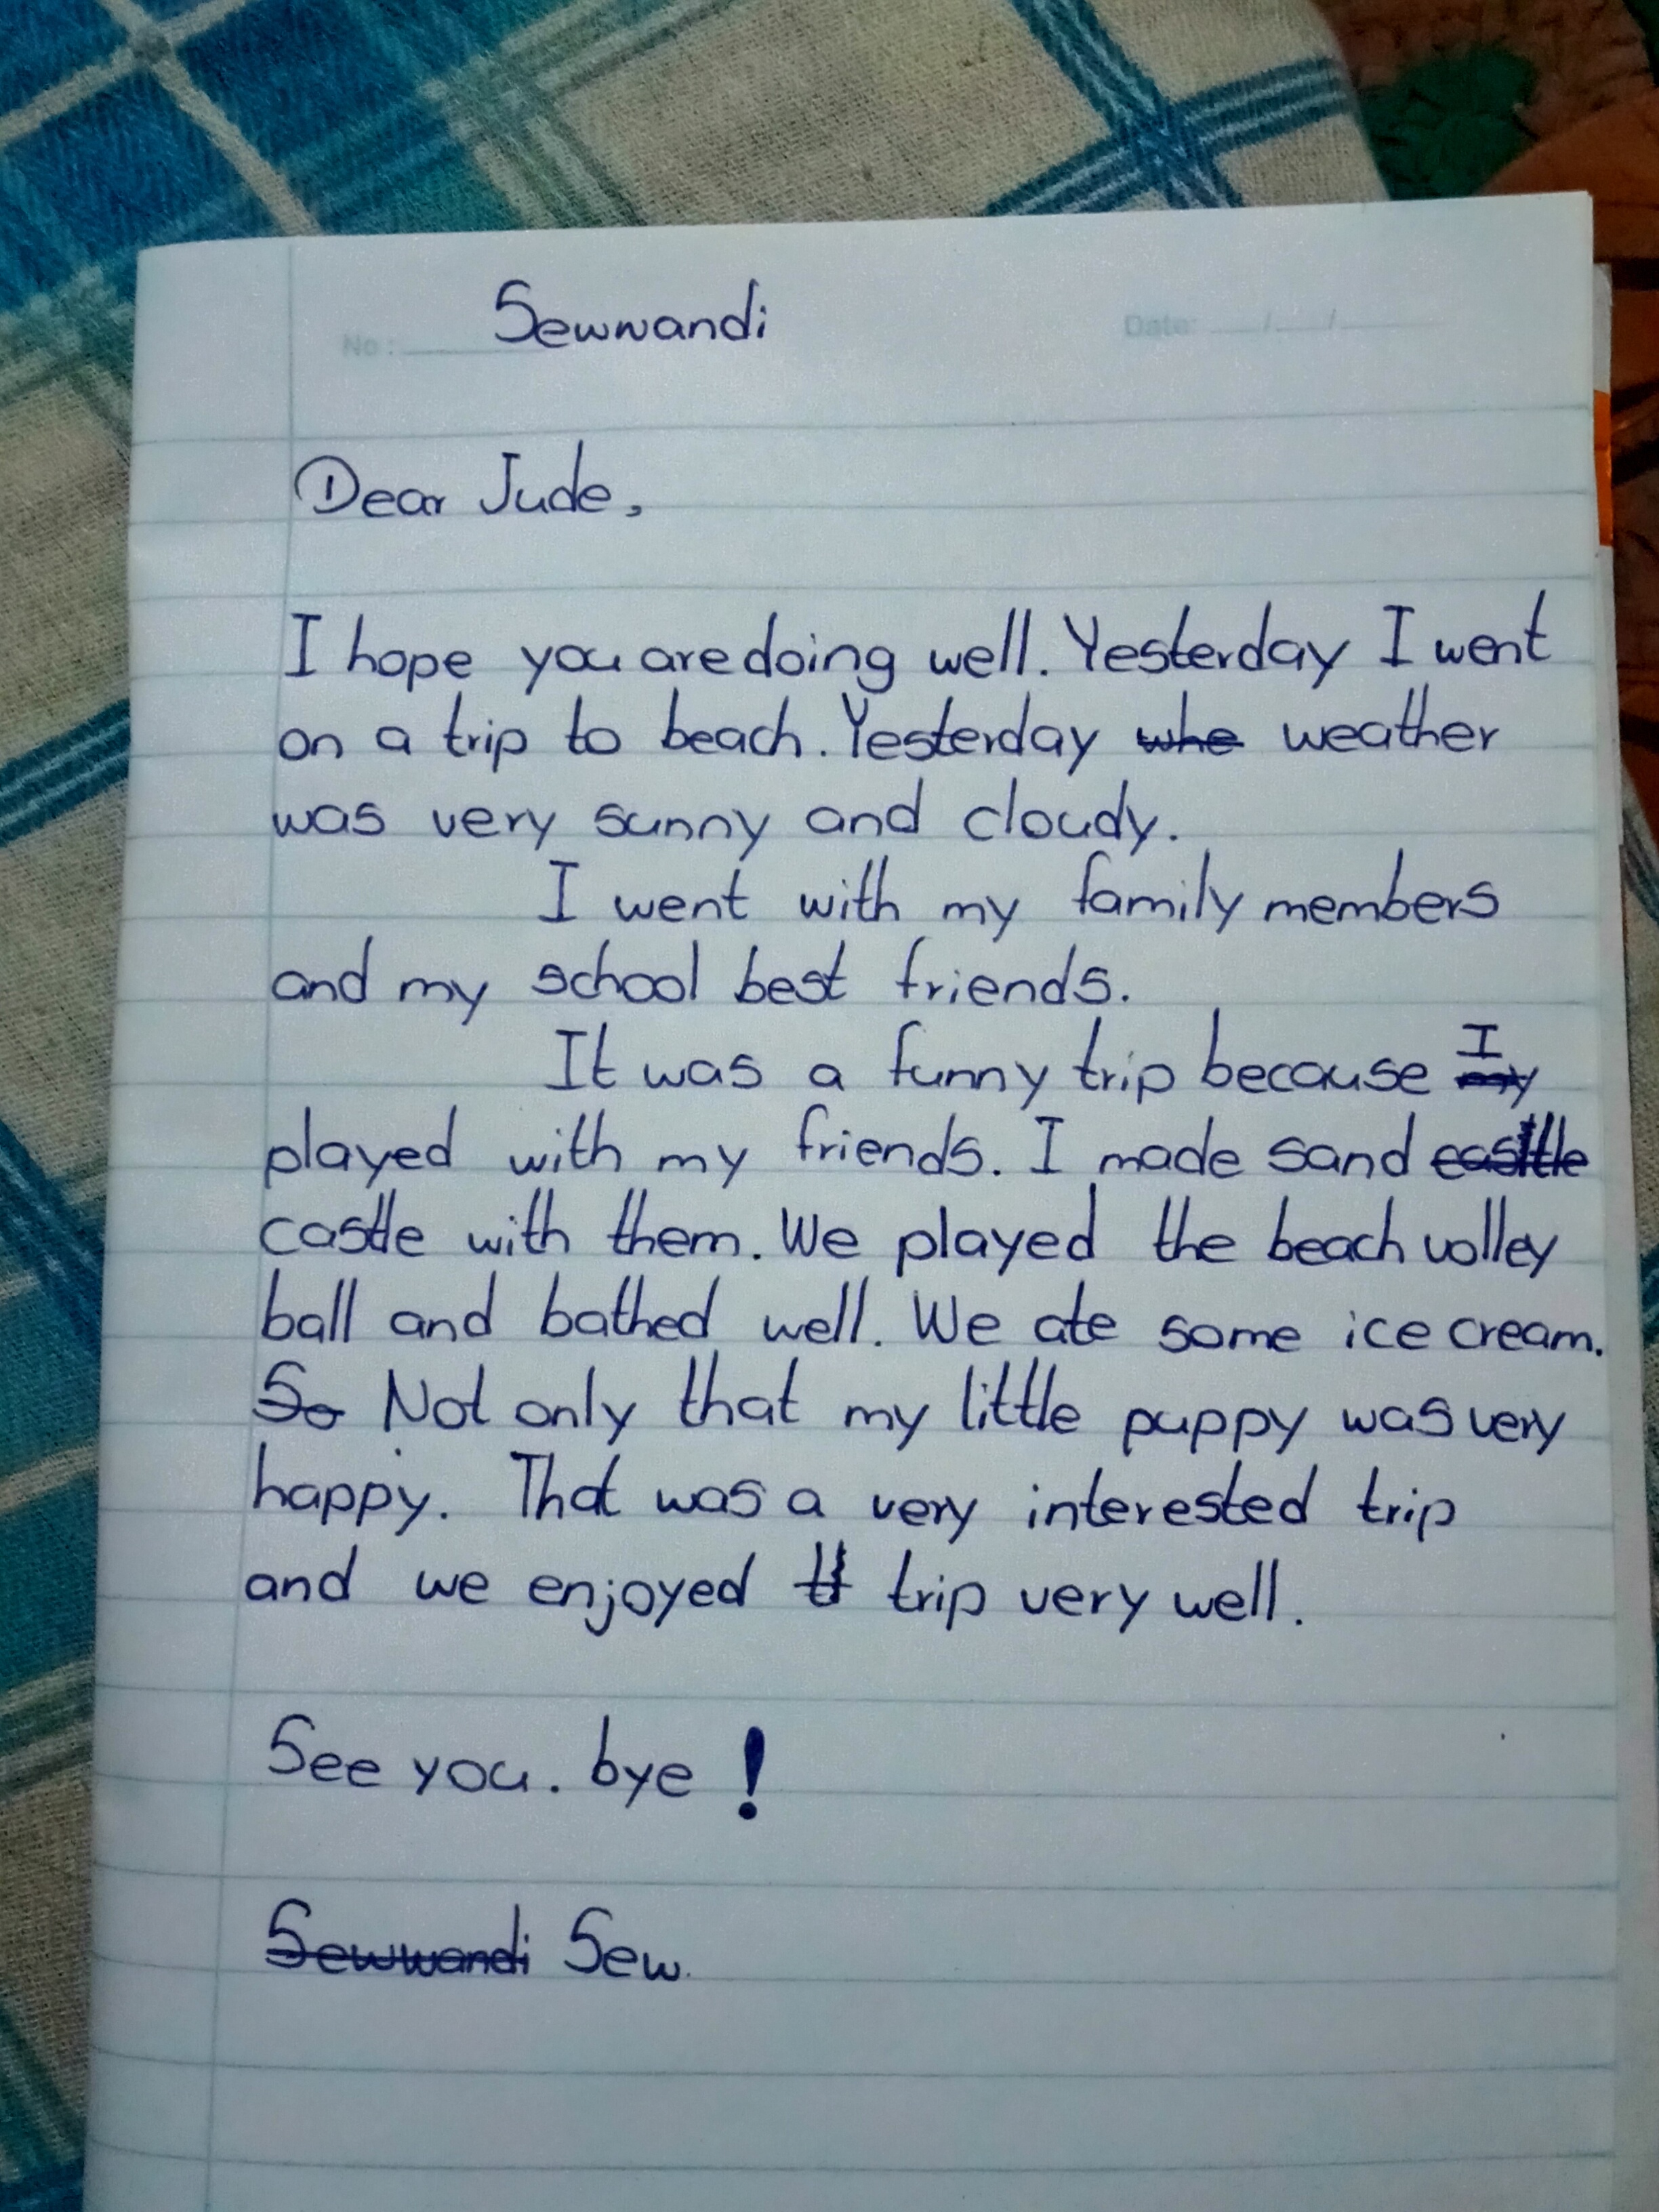 Sewwandi
No : Date: / /
Dear Jude,
I hope you are doing well. Yesterday I went
on a trip to beach. Yesterday whe weather
was very sunny and cloudy.
I went with my family members
and my school best friends.
It was a funny trip because my I
played with my friends. I made sand
castle with them. We played the beach volley
ball and bathed well. We ate some ice cream.
So Not only that my little puppy was very
happy. That was a very interested trip
and we enjoyed trip very well.
See you. bye !
Sewwandi Sew.